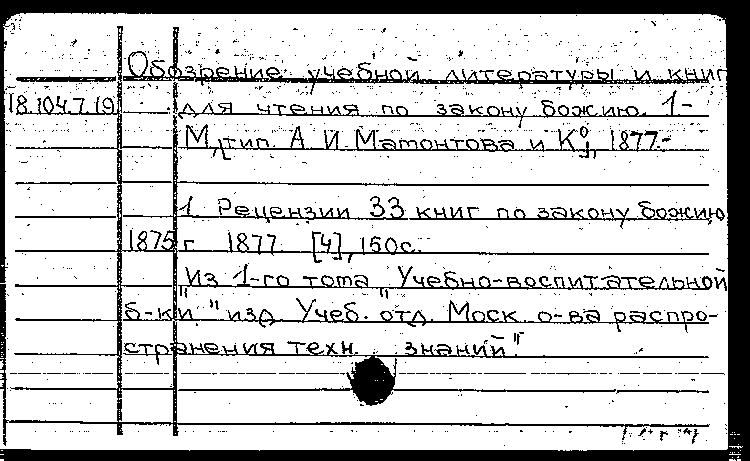 Обозрение учебной литературы и книг
18.104.7.19 для чтения по закону божию. 1-
М., тип. А И Мамонтова и Кº, 1877.-
1. Рецензии 33 книг по закону божию
1875 г 1877 [4], 150с.
Из 1-го тома "Учебно-воспитательной
б-ки" изд. Учеб. отд. Моск о-ва распро-
странения техн. знаний"